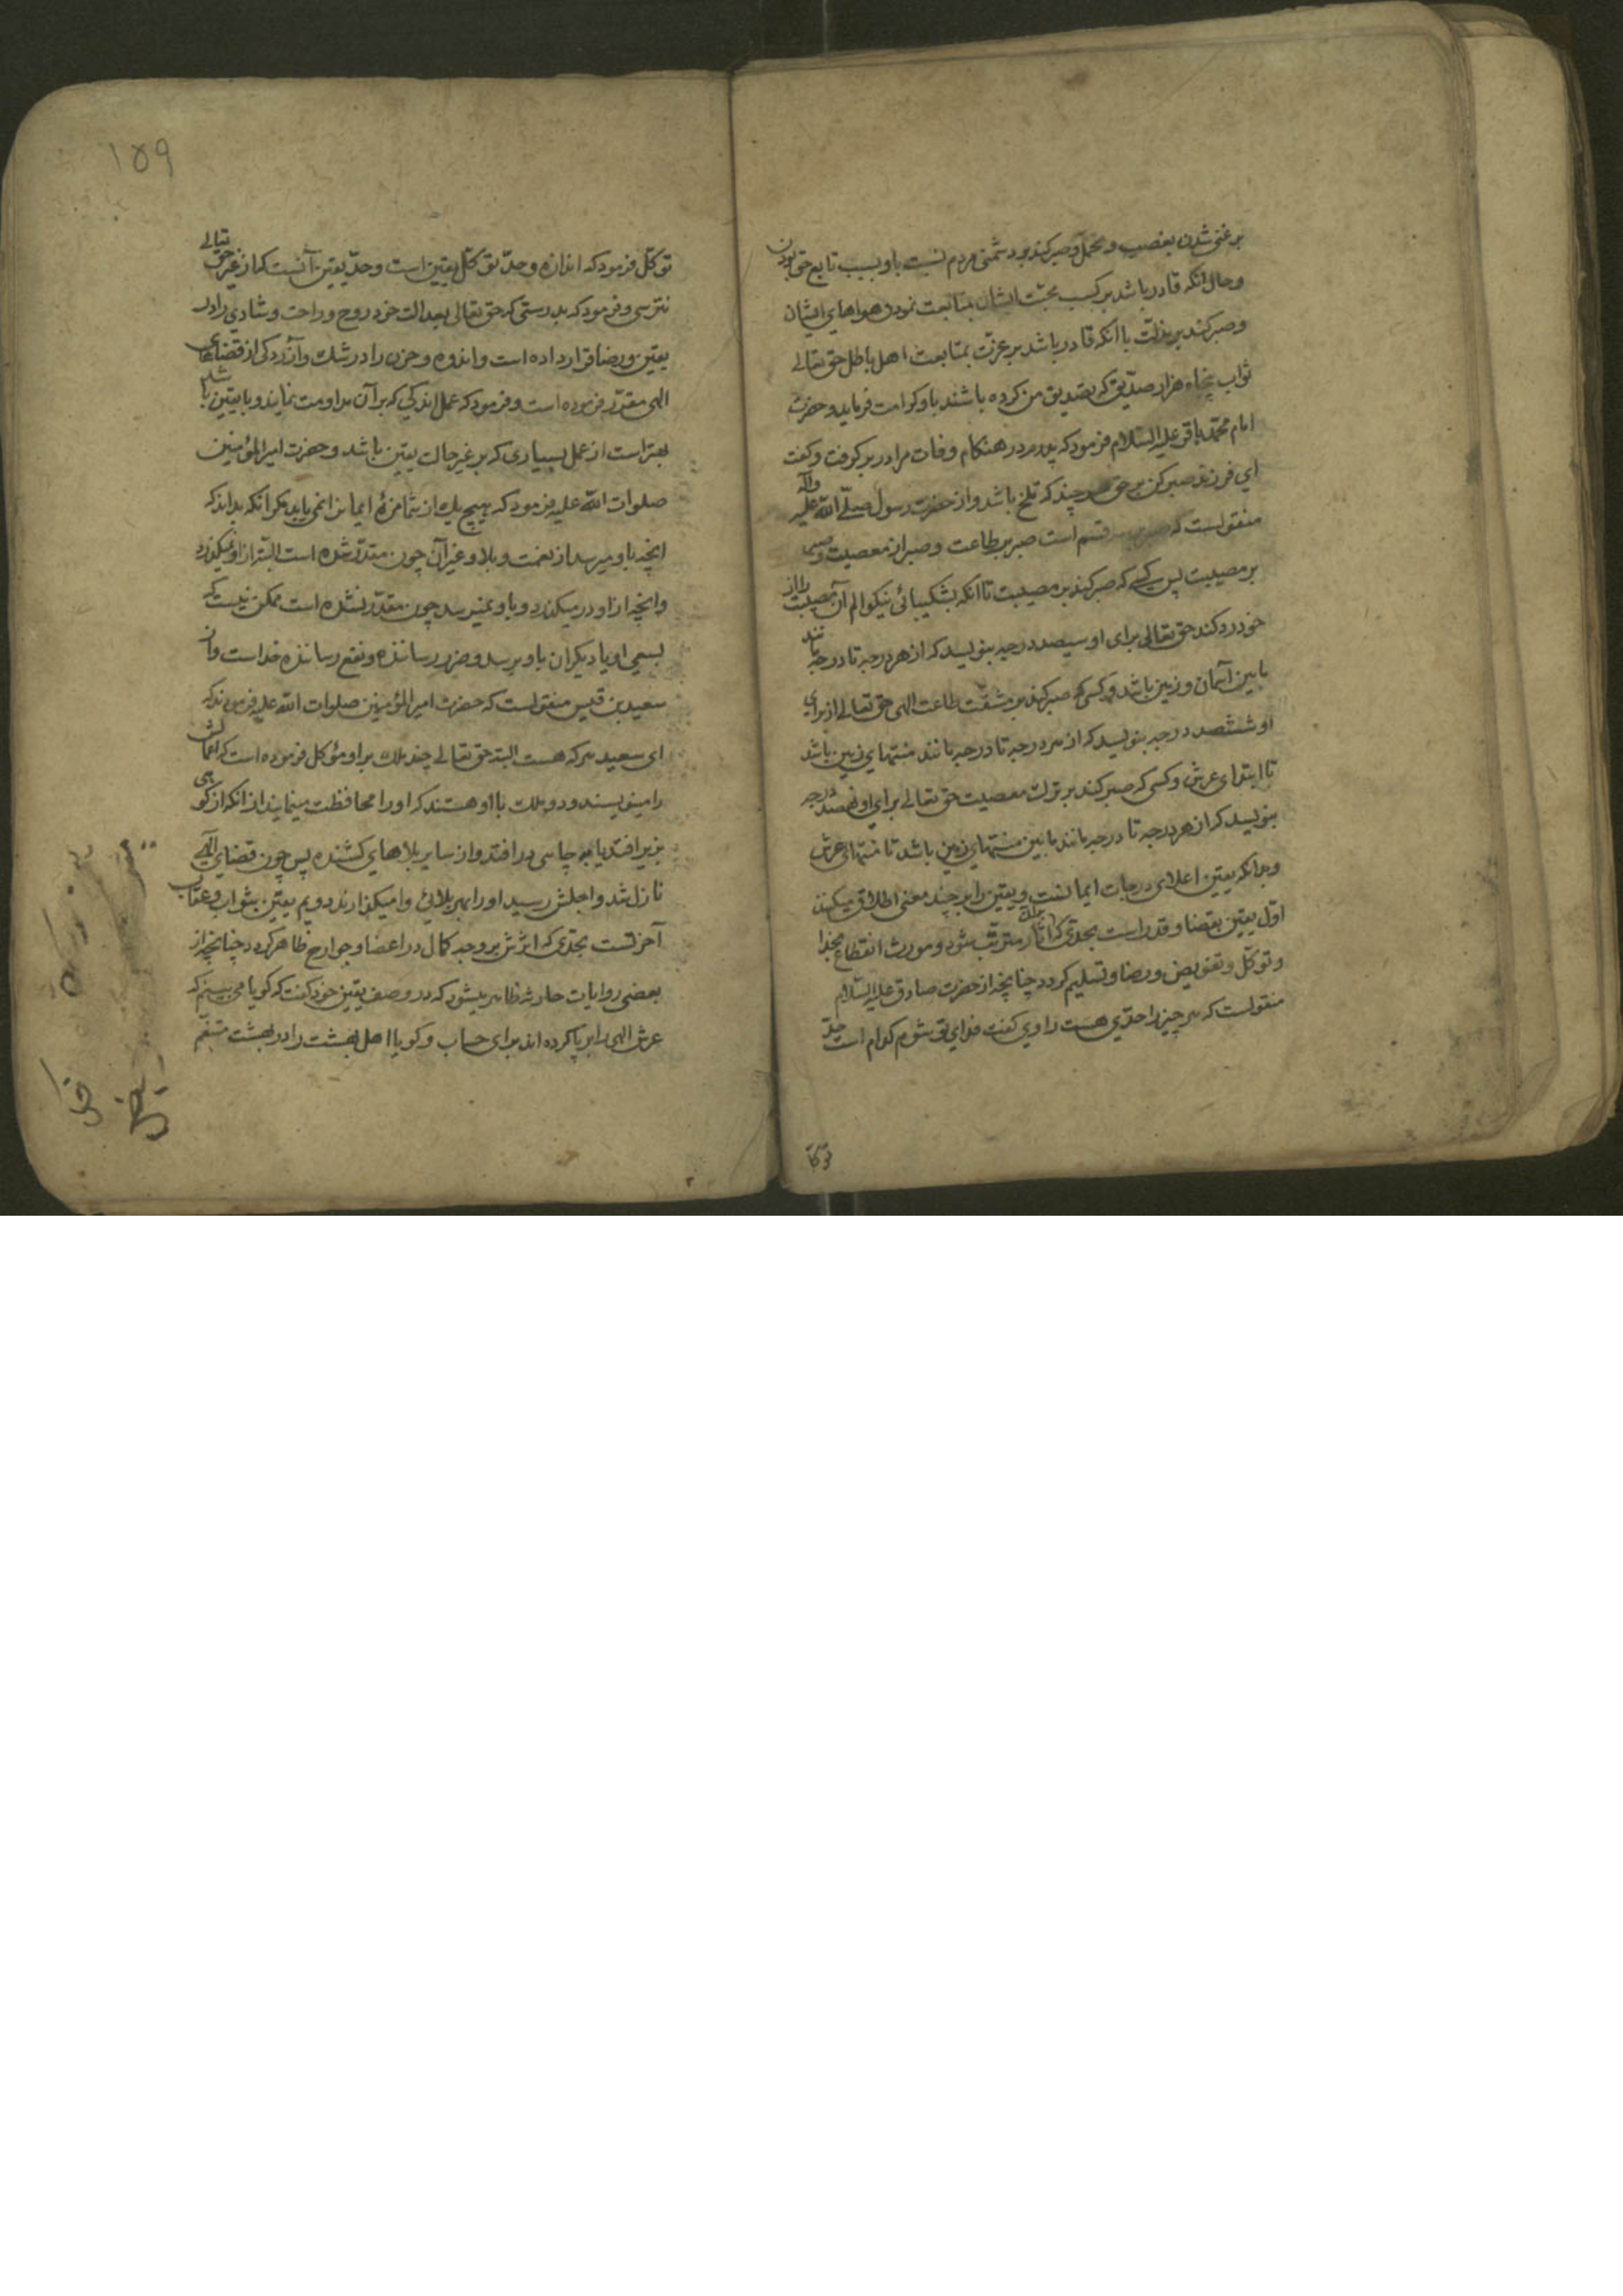 بر غنی شدن بغصب و تحمل و صبر کند بر دشمنی مردم نسبت باو بسبب تابع حق بودن
و حال انکه قادر باشد بر کسب محبّت ایشان بمتابعت نمودن هواهای ایشان
و صبر کند بر مذلّت با انکه قادر باشد بر عزّت بمتابعت اهل باطل حق تعالی
ثواب پنجاه هزار صدّیق که تصدیق من کرده باشند باو کرامت فرماید و حضرت
امام محمّد باقر علیه السّلام فرمود که پدرم در هنکام وفات مرا در بر کرفت و کفت
ای فرزند صبر کن بر حق هر چند که تلخ باشد و از حضرت رسول صلّی اللّه علیه واله
منقولست که صبر بر سه قسم است صبر بر طاعت و صبر از معصیت و صبر
بر مصیبت پس کسی که صبر کند بر مصیبت تا انکه بشکیبائی نیکو الم آن مصیبت را از
خود رد کند حق تعالی برای او سیصد درجه بنویسد که از هر درجه تا درجه مانند
مابین آسمان و زمین باشد و کسی که صبر کند بر مشقّت طاعت الهی حق تعالی از برای
او ششصد درجه بنویسد که از هر درجه تا درجه مانند منتهای زمین باشد
تا ابتدای عرش و کسی که صبر کند بر ترک معصیت حق تعالی برای او نهصد درجه
بنویسد که از هر درجه تا درجه مانند مابین منتهای زمین باشد تا منتهای عرش
و بدانکه یقین اعلای درجات ایمانست و یقین را بر چند معنی اطلاق میکنند
اوّل یقین بقضا و قدر است بحدّی که اثار بران مترتّب شود و مورث انقطاع بخدا
و توکّل و تفویض و رضا و تسلیم کردد چنانچه از حضرت صادق علیه السّلام
منقولست که هر چیز را حدّی هست راوی کفت فدای تو شوم کدام است حدّ
توکل
۱۵۹
توکّل فرمود که اندازه و حدّ توکّل یقین است و حدّ یقین آنست که از غیر حق تعالی
نترسی و فرمود که بدرستی که حق تعالی بعدالت خود روح و راحت و شادی را در
یقین و رضا قرار داده است و اندوه و حزن را در شک و آزردکی از قضاهای
الهی مقدّر فرموده است و فرمود که عمل اندکی که بر آن مداومت نمایند و با یقین باشد
بهتر است از عمل بسیاری که بر غیر حالت یقین باشد و حضرت امیر المؤمنین
صلوات اللّه علیه فرمود که هیچ یک از شما مزهٔ ایمان را نمی یابد مکر انکه بداند که
انچه باو میرسد از نعمت و بلا و غیر آن چون مقدّر شده است البتّه از او نمیکذرد
و انچه از او در میکذرد و باو نمیرسد چون مقدّر نشده است ممکن نیست که
بسعی او یا دیکران باو برسد و ضرر رساننده و نفع رساننده خداست و از
سعید بن قیس منقولست که حضرت امیر المؤمنین صلوات اللّه علیه فرمودند که
ای سعید هر که هست البته حق تعالی چند ملک بر او موکّل فرموده است که اعمالش
را مینویسند و دو ملک با او هستند که او را محافظت مینمایند از انکه از کوهی
بزیر افتد یا به چاهی در افتد و از سایر بلاهای کشنده پس چون قضای الهی
نازل شد و اجلش رسید او را بهر بلائی وا میکذارند دویم یقین بثواب و عقاب
آخرتست بحدّی که اثرش بر وجه کمال در اعضا و جوارح ظاهر کردد چنانچه از
بعضی روایات حارثه ظاهر میشود که در وصف یقین خود کفت که کویا می بینم که
عرش الهی را بر پا کرده اند برای حساب و کویا اهل بهشت را در بهشت متنعّم